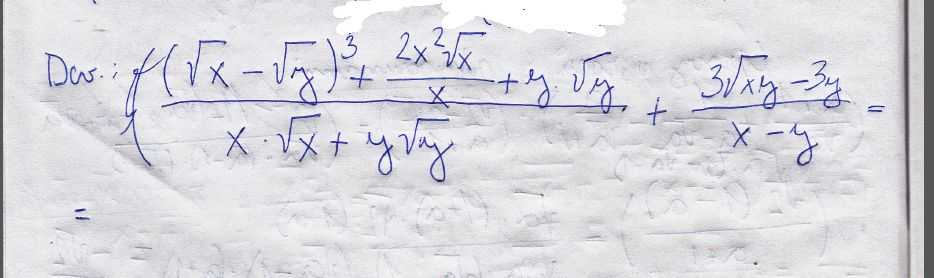 Dov.: ((√x - √y)³ + 2x²√x/x + y·√y)/(x·√x + y√y) + (3√xy - 3y)/(x - y) =
=